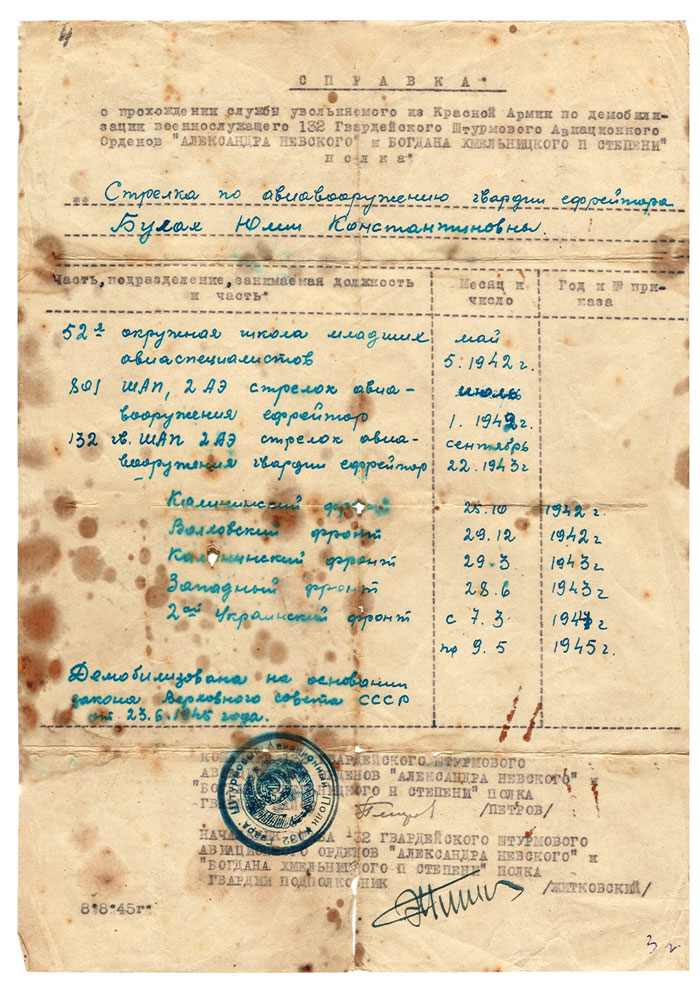 4
СПРАВКА
о прохождении службы увольняемого из Красной Армии по демобили-
зации военнослужащего 132 Гвардейского Штурмового Авиационного
Орденов "АЛЕКСАНДРА НЕВСКОГО" и БОГДАНА ХМЕЛЬНИЦКОГО П СТЕПЕНИ"
полка
Стрелка по авиавооружению гвардии ефрейтора
Булах Юлии Константиновны.
Часть, подразделение, занимаемая должность и часть
Месяц и число
Год и № приказа
52я окружная школа младших май
авиаспециалистов 5. 1942 г.
801 ШАП, 2 АЭ стрелок авиа-
вооружения ефрейтор 1. 1942 г.
132 гв. ШАП 2 АЭ стрелок авиа- сентябрь
вооружения гвардии ефрейтор 22. 1943 г
Калининский фронт 25.10 1942 г.
фронт 29.12 1942 г.
Калининский фронт 29.3 1943 г
Западный фронт 28.6 1943 г
2ой Украинский фронт с 7.3 г
по 9.5 1945 г.
Демобилизована на основании
закона Верховного совета СССР
от 23.6.1945 года.
ГВАРДЕЙСКОГО ШТУРМОВОГО
ОРДЕНОВ "АЛЕКСАНДРА НЕВСКОГО" и
П СТЕПЕНИ" ПОЛКА
/ПЕТРОВ/
Штурмовой Авиационный Полк * 132 Гвард.
132 ГВАРДЕЙСКОГО ШТУРМОВОГО
АВИАЦИОННОГО ОРДЕНОВ "АЛЕКСАНДРА НЕВСКОГО" и
"БОГДАНА ХМЕЛЬНИЦКОГО П СТЕПЕНИ" ПОЛКА
ГВАРДИИ ПОДПОЛКОВНИК /ЖИТКОВСКИЙ/
8.8.45г.